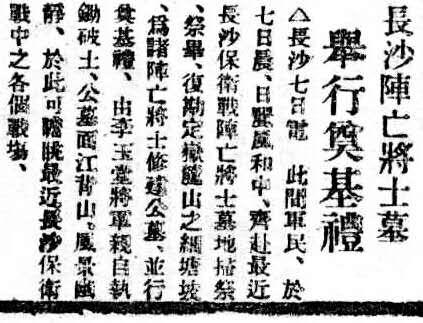 長沙陣亡將士墓
舉行奠基禮
△長沙七日電　此間軍民、於
七日晨、日麗風和中、齊赴最近
長沙保衛戰陣亡將士墓地掃祭
、祭畢、復勘定嶽麓山之塘坡
、爲諸陣亡將士修建公墓、並行
奠基禮、由李玉堂將軍親自執
鋤破土、公墓面江背山、風景幽
靜、於此可瞻眺最近長沙保衛
戰中之各個戰塲、